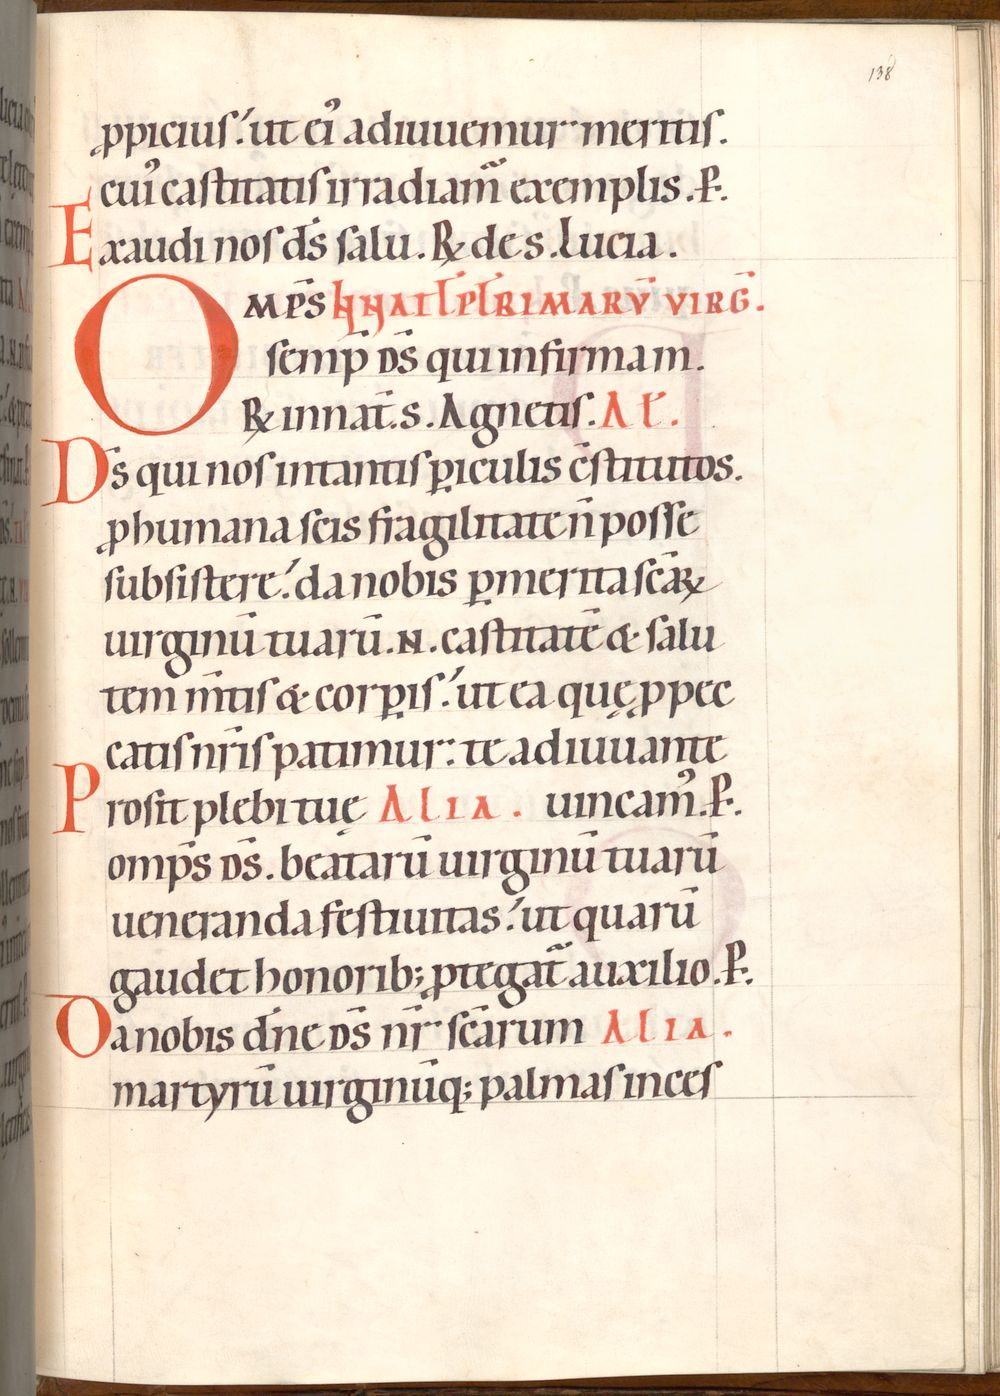 138
ꝓpicius.ut ei᾿ adiuuemur meritis.
cui᾿ castitatis irradiam̃ exemplis.P̄.
Exaudi nos ds̄ salu. ℞ de s. Lucia.
OMP̄S PLRIMARV̄ VIRḠ.
semp̄ DS̄ qui infirmam.
℞ in nat̄.s. Agnetis. Aƚ.
Ds̄ qui nos in tantis ꝑiculis c̄stitutos.
ꝓ humana scis fragilitate n̄ posse
subsistere.da nobis ꝑ merita sc̄aꝝ
uirginū tuarū.N. castitatē & salu
tem m̄tis & corꝑis.ut ea quę ꝓ pec
catis nr̄is patimur: te adiuuante
Prosit plebi tuę Alia. uincam᾿.P̄.
omp̄s DS̄. beatarū uirginū tuarū
ueneranda festiuitas.ut quarū
gaudet honorib; ꝓtegat̃ auxilio.P̄.
Da nobis dn̄e DS̄ nr̄ sc̄arum Alia.
martyrū uirginūq; palmas inces